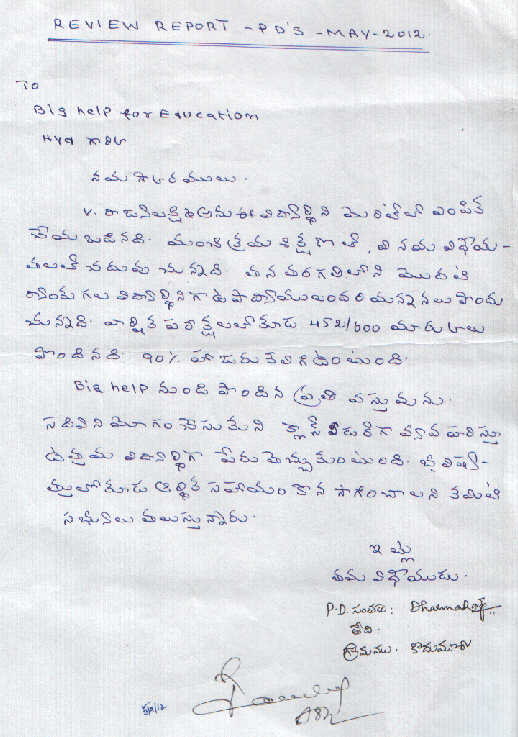 REVIEW REPORT - PD'S - MAY-2012
TO
Big help for Education
HYd గారికి
నమస్కారములు.
V. రాజేశ్వరి అను ఈ విద్యార్థిని మెరిట్‌లో ఎంపిక
చేయబడినది. మంచి క్రమశిక్షణతో, వినయ విధేయ-
తలతో చదువుచున్నది. తన తరగతిలోనే మొదటి
ర్యాంకు గల విద్యార్థినిగా ఉపాధ్యాయులందరి మన్ననలు పొందు
చున్నది. వార్షిక పరీక్షలలో కూడ 452/600 మార్కులు
పొందినది. 90% హాజరు కలిగి ఉంటుంది.
Big help నుండి పొందిన ప్రతి వస్తువును
సద్వినియోగం చేసుకుని క్లాస్ లీడర్‌గా
ఉత్తమ విద్యార్థిగా పేరు తెచ్చుకుంటుంది. భవిష్య-
త్తులో కూడ ఆర్థిక సహాయం కొనసాగించాలని కమిటీ
సభ్యులు తలుస్తున్నారు.
ఇట్లు
తమ విధేయుడు.
P.D. సంతకం:
తేది.
గ్రామము.